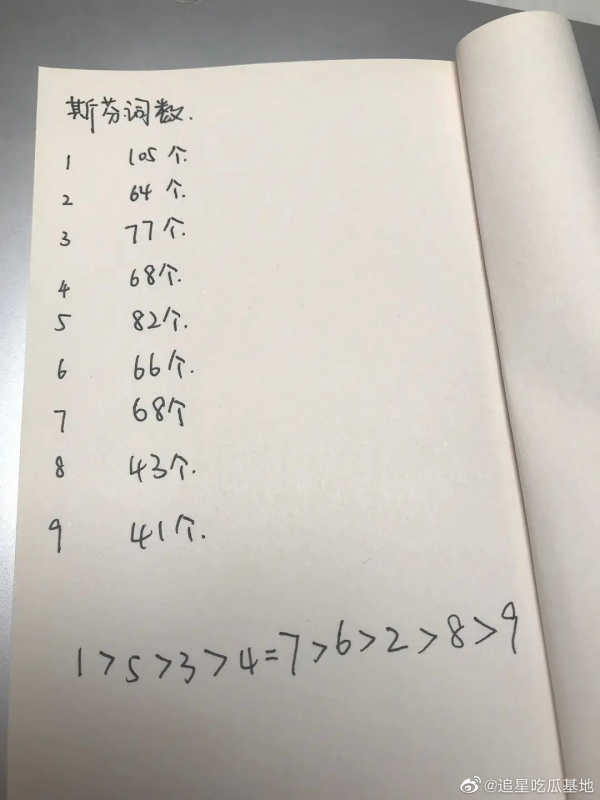 斯芬词数.
1 105个.
2 64个.
3 77个.
4 68个.
5 82个.
6 66个.
7 68个
8 43个.
9 41个.
1>5>3>4=7>6>2>8>9
@追星吃瓜基地